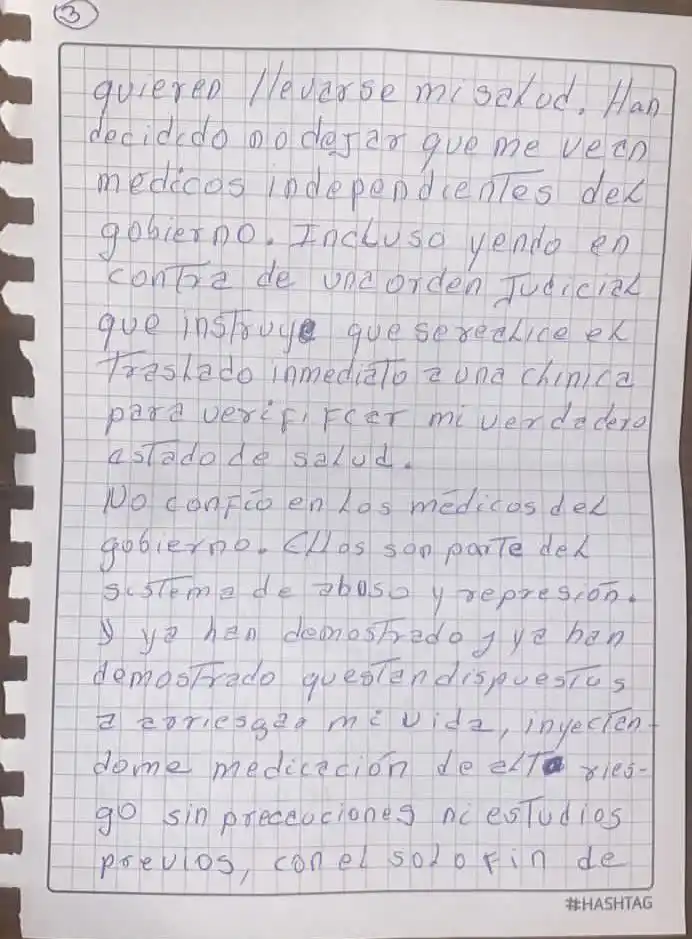 3
quieren llevarse mi salud. Han
decidido no dejar que me vean
médicos independientes del
gobierno. Incluso yendo en
contra de una orden Judicial
que instruye que se realice el
Traslado inmediato a una clínica
para verificar mi verdadero
estado de salud.
No confío en los médicos del
gobierno. Ellos son parte del
sistema de abuso y represión.
y ya han demostrado y ya han
demostrado questan dispuestos
a arriesgar mi vida, inyectan-
dome medicación de alto ries-
go sin precauciones ni estudios
previos, con el solo fin de
#HASHTAG